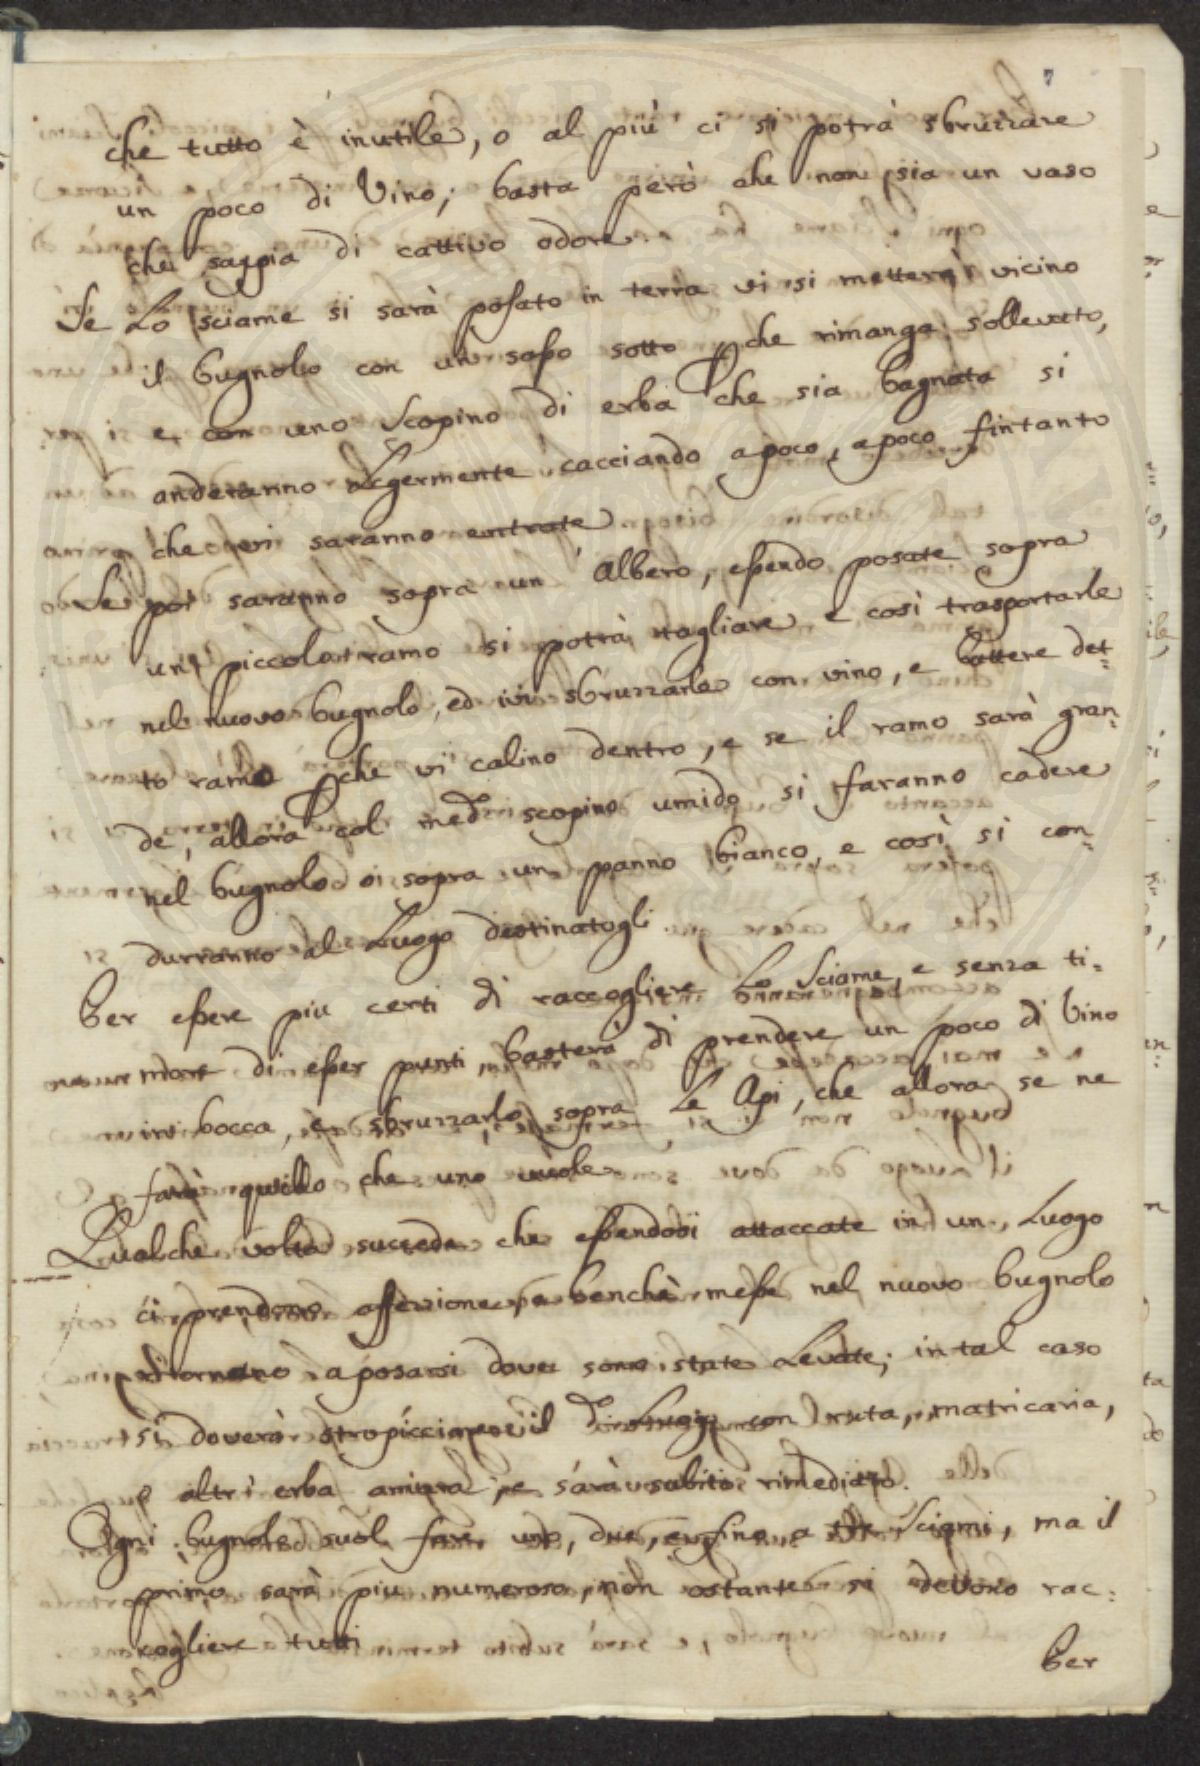 7
che tutto è inutile, o al più ci si potrà sbruzzare
un poco di Vino; basta però che non sia un vaso
che sappia di cattivo odore
Se Lo sciame si sarà posato in terra vi si metterà vicino
il bugnolo con un sasso sotto che rimanga sollevato,
e con uno scopino di erba che sia bagnata si
anderanno Legermente cacciando apoco, apoco fintanto
che saranno entrate
Se poi saranno sopra un Albero, essendo posate sopra
un piccolo ramo si potrà tagliare e così trasportarle
nel nuovo bugnolo, ed ivi sbruzzarle con vino, e battere det-
to ramo che vi calino dentro, e se il ramo sarà gran-
de, allora col med.o scopino umido si faranno cadere
nel bugnolo o sopra un panno bianco, e così si con-
durranno al Luogo destinatogli
Per essere piu certi di raccogliere Lo Sciame e senza ti-
more di esser punti, basterà di prendere un poco di Vino
in bocca, e sbruzzarlo sopra Le Api, che allora se ne
farà quello che uno vuole
Qualche volta succede che essendosi attaccate in un Luogo
ci prendono affezione, e benchè messe nel nuovo bugnolo
ritornano a posarsi dove sono state Levate; in tal caso
si doverà stropicciare il d.o Luogo con ruta, matricaria,
o altr'erba amara, e sarà subito rimediato.
Ogni bugnolo suol fare uno, due, e fino a tre Sciami, ma il
primo sarà piu numeroso, non ostante si devono rac-
cogliere tutti
Per